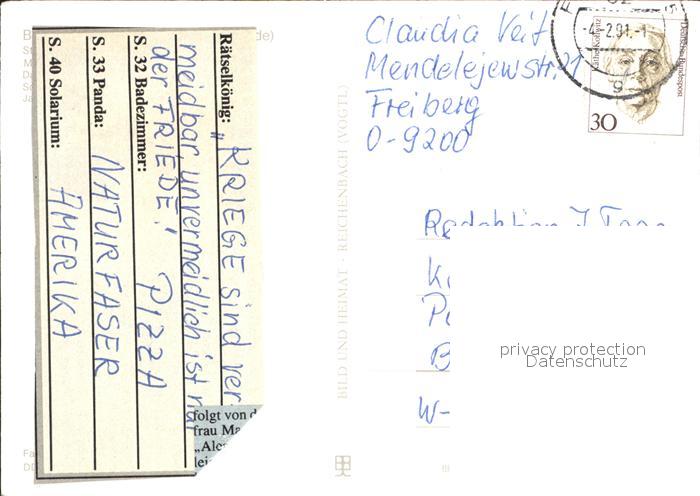 Rätselkönig: „KRIEGE sind ver
meidbar, unvermeidlich ist nur
der FRIEDE!
S. 32 Badezimmer: PIZZA
S. 33 Panda: NATURFASER
S. 40 Solarium: AMERIKA
folgt von d
frau Ma
BILD UND HEIMAT · REICHENBACH (VOGTL)
Claudia Veit
Mendelejewstr. 21
Freiberg
O-9200
-4.-2.91.-1
Käthe Kollwitz
Deutsche Bundespost
30
Redaktion 7 Tage
B
W-
privacy protection
Datenschutz